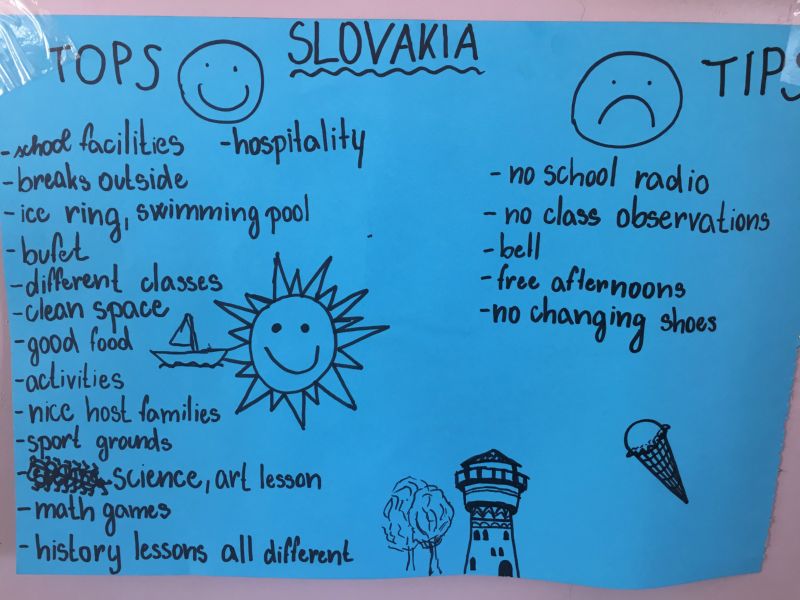 SLOVAKIA
TOPS
- school facilities
- hospitality
- breaks outside
- ice ring, swimming pool
- bufet
- different classes
- clean space
- good food
- activities
- nice host families
- sport grounds
- science, art lesson
- math games
- history lessons all different
TIPS
- no school radio
- no class observations
- bell
- free afternoons
- no changing shoes